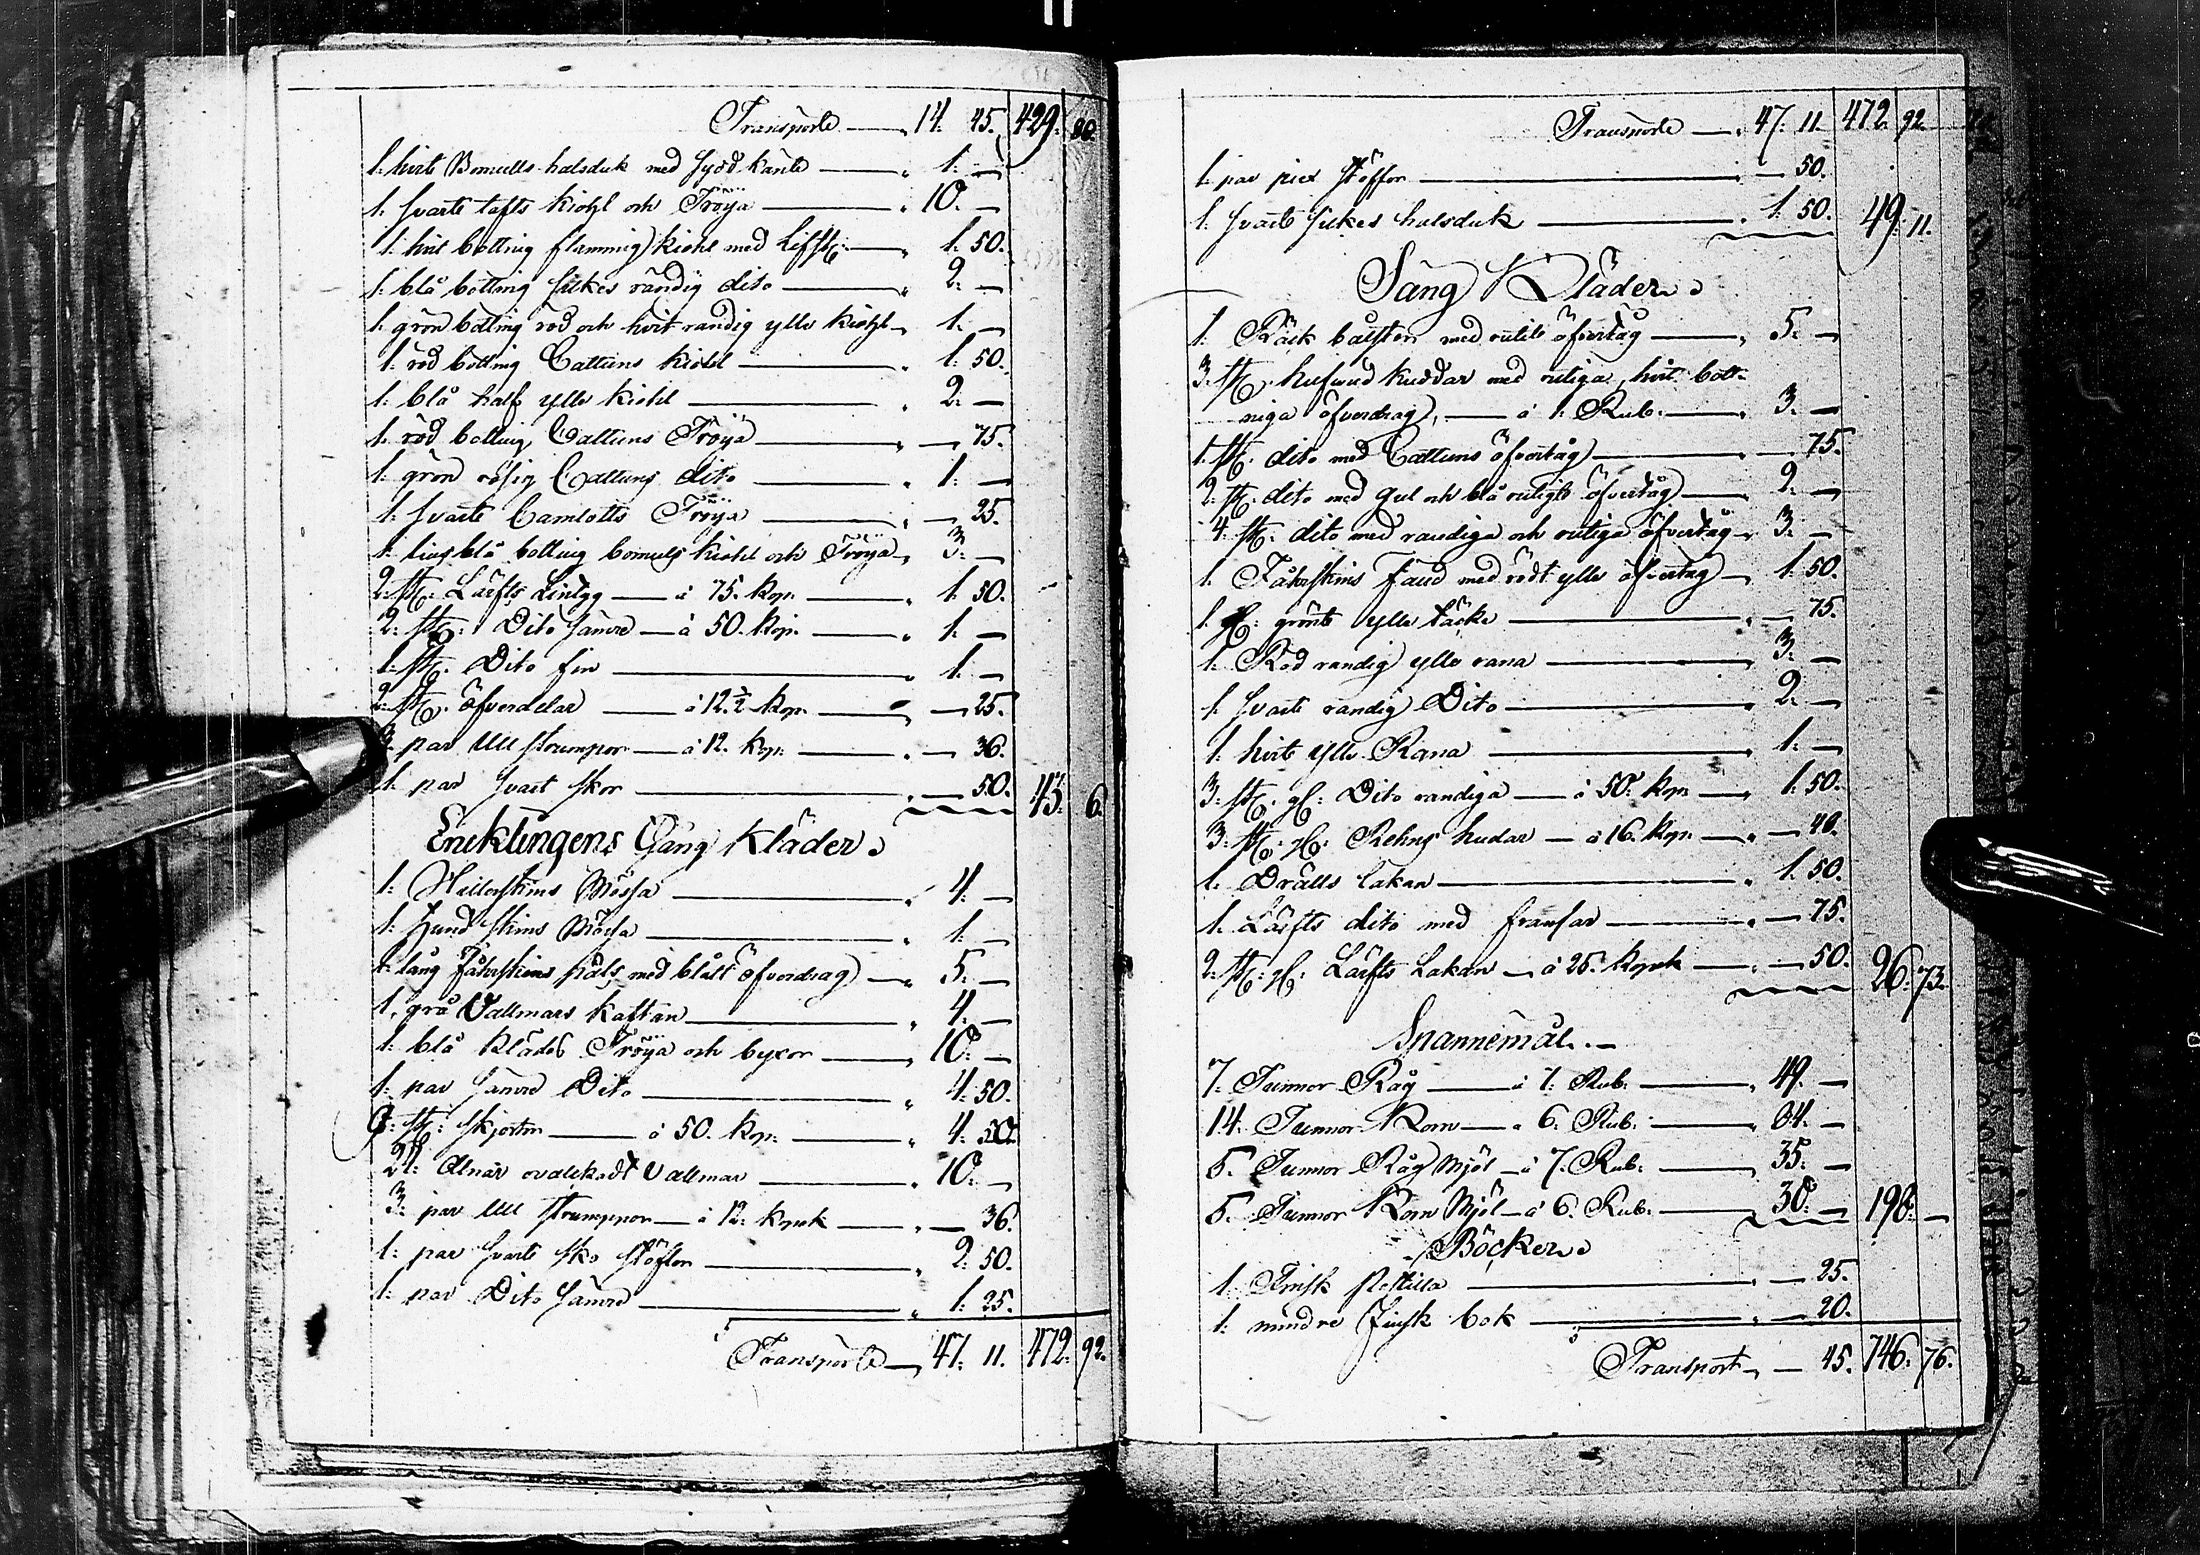 Transporte 14. 45. 429. 86.
1. hvit Bomulls halsduk med sydd kant " 1. —
1. svart tafts kiohl och Tröija " 10. —
1. hvit botting flammig kiohl med Lifst: " 1. 50.
1. blå botting silkes randig dito " 2. —
1. grön botting röd och hvit randig ylle kiohl " 1. —
1. röd botting Cattuns kiohl " 1. 50.
1. blå half ylle kiohl " 2. —
1. röd botting Cattuns Tröija " — 75.
1. grön rosig Cattuns dito " 1. —
1. svart Camlotts Tröija " — 25.
1. liusblå botting bomuls kiohl och Tröija " 3. —
2. st: Lärfts Lintyg — à 75. kop. " 1. 50.
2. st: Dito sämre — à 50. kop. " 1. —
1. st: Dito fin " 1. —
2. st: öfverdelar — à 12 ½ kop. " — 25.
3. par Ull strumpor — à 12. kop. " — 36.
1. par svart skor " — 50. 43. 6.
Encklingens Gång Kläder.
1. Skins Mössa " 4. —
1. Hund skins Mössa " 1. —
1. lång Fåhrskins päls med blått öfverdrag " 5. —
1. grå Vallmars kaftan " 4. —
1. blå Klädes Tröija och byxor " 10. —
1. par sämre Dito " 4. 50.
9. st: skjortor — à 50. kop. " 4. 50.
24. Alnar ovalckadt Vallmar " 10. —
3. par Ull strumpor — à 12. kopek " — 36.
1. par svarta sko stöflor " 2. 50.
1. par Dito sämre " 1. 25.
Transporte 47. 11. 472. 92.
Transporte 47. 11. 472. 92
1. par piex stöflor — 50.
1. svart silkes halsduk " 1. 50. 49. 11.
Säng Kläder.
1. Räck bålster med rutit öfvertåg " 5. —
3. st: hufvud kuddar med rutiga hvit bott-
niga öfverdrag, — à 1. Rub. " 3. —
1. st: dito med Cattuns öfvertåg — 75.
2. st: dito med gul och blå rutigt öfvertåg 2. —
4. st: dito med randiga och rutiga öfvertåg 3. —
1. Fåhrskins fäud med rödt ylle öfvertag 1. 50.
1. gl: grönt ylle täcke " — 75.
1. Röd randig ylle rana " 3. —
1. svart randig Dito " 2. —
1. hvit ylle Rana " 1. —
3. st: gl: Dito randiga — à 50. kop. " 1. 50.
3. st: gl: Rehns hudar — à 16. kop. " — 48.
1. Drälls lakan " 1. 50.
1. Lärfts dito med fransar " — 75.
2. st: gl: Lärfts Lakan — à 25. kopek " — 50. 26. 73.
Spannemål. —
7. Tunnor Råg — à 7. Rub. " 49. —
14. Tunnor Korn — à 6. Rub. " 84. —
5. Tunnor Råg Mjöl — à 7. Rub. 35. —
5. Tunnor Korn Mjöl — à 6. Rub. 30. — 198. —
Böcker.
1. Finsk Postilla " — 25.
1. mindre Finsk bok " — 20.
Transport — 45. 746. 76.